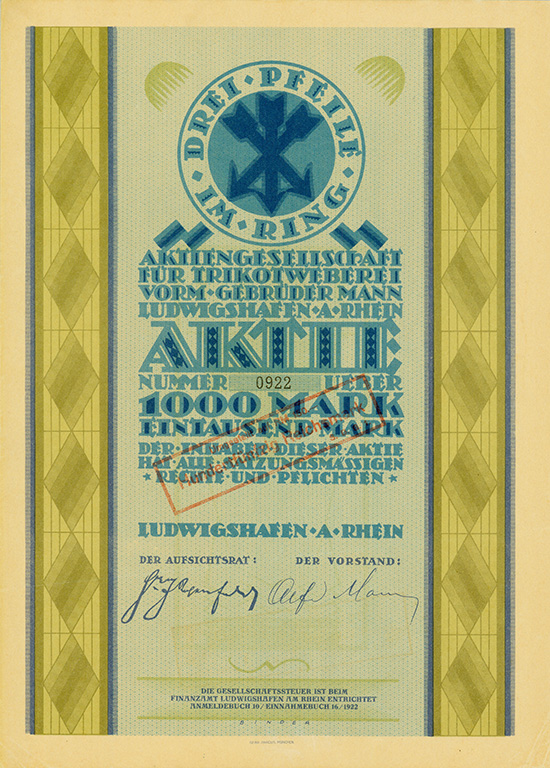 DREI · PFEILE
· IM · RING ·
AKTIENGESELLSCHAFT
FÜR TRIKOTWEBEREI
VORM · GEBRÜDER MANN
LUDWIGSHAFEN · A · RHEIN
AKTIE
NUMMER 0922 UEBER
1000 MARK
EINTAUSEND MARK
DER INHABER DIESER AKTIE
HAT ALLE SATZUNGSMÄSSIGEN
★ RECHTE UND PFLICHTEN ★
Reichsmark
LUDWIGSHAFEN · A · RHEIN
DER AUFSICHTSRAT: DER VORSTAND:
DIE GESELLSCHAFTSSTEUER IST BEIM
FINANZAMT LUDWIGSHAFEN AM RHEIN ENTRICHTET
ANMELDEBUCH 10 / EINNAHMEBUCH 16 / 1922
BINDER